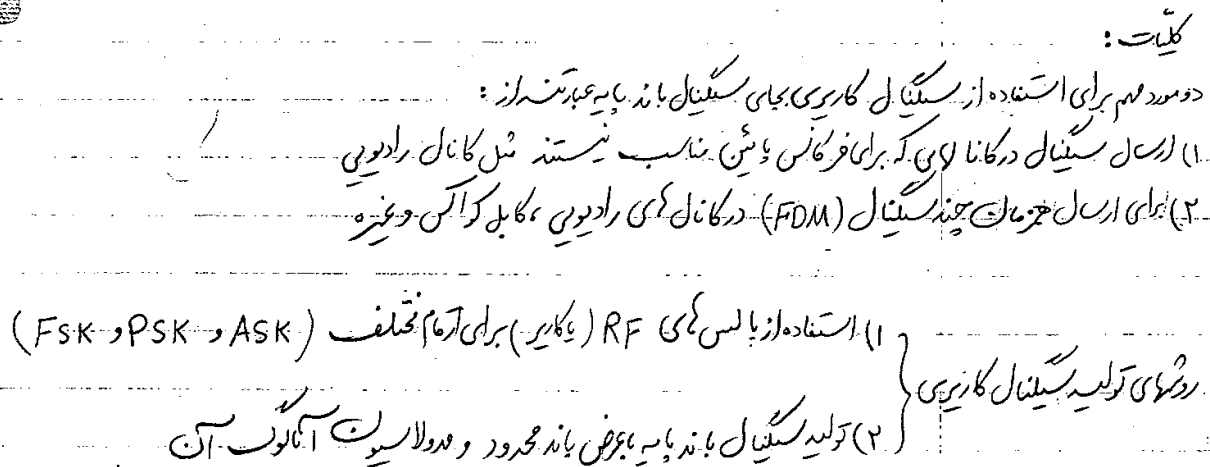 کلیّات :
دو مورد مهم برای استفاده از سیگنال کاریری بجای سیگنال باند پایه عبارتند از :
۱) ارسال سیگنال در کانالهایی که برای فرکانس پائین مناسب نیستند مثل کانال رادیویی
۲) برای ارسال همزمان چند سیگنال (FDM) در کانال های رادیویی ، کابل کواکس و غیره
روشهای تولید سیگنال کاریری
۱) استفاده از پالس های RF (یا کاریر) برای ارقام مختلف (ASK و PSK و FSK)
۲) تولید سیگنال باند پایه با عرض باند محدود و مدولاسیون آنالوگ آن